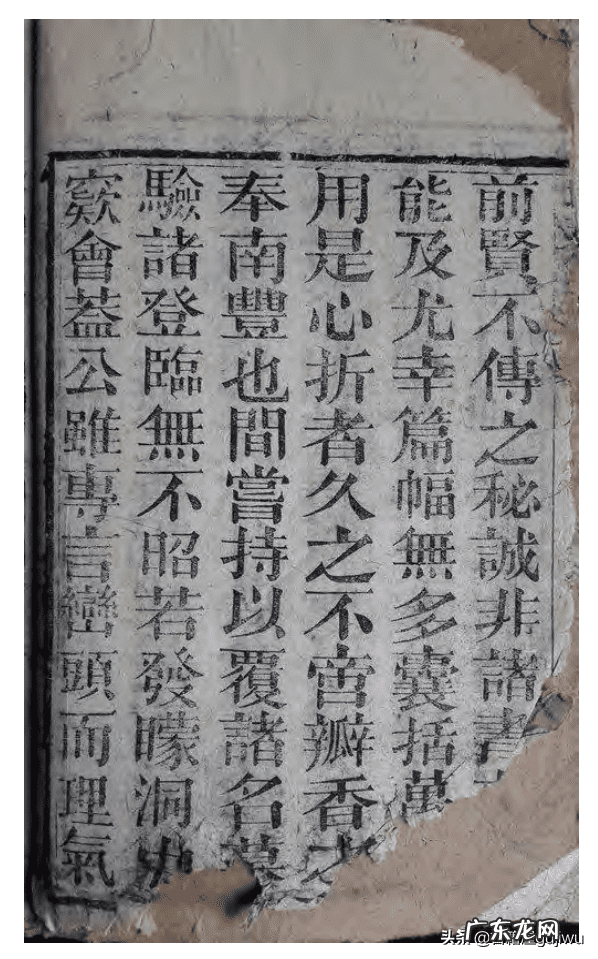 前賢不傳之秘誠非諸書
能及尤幸篇幅無多囊括萬
用是心折者久之不啻瓣香
奉南豐也間嘗持以覆諸名墓
驗諸登臨無不昭若發矇洞
窾會蓋公雖專言巒頭而理氣
广东龙网
头条